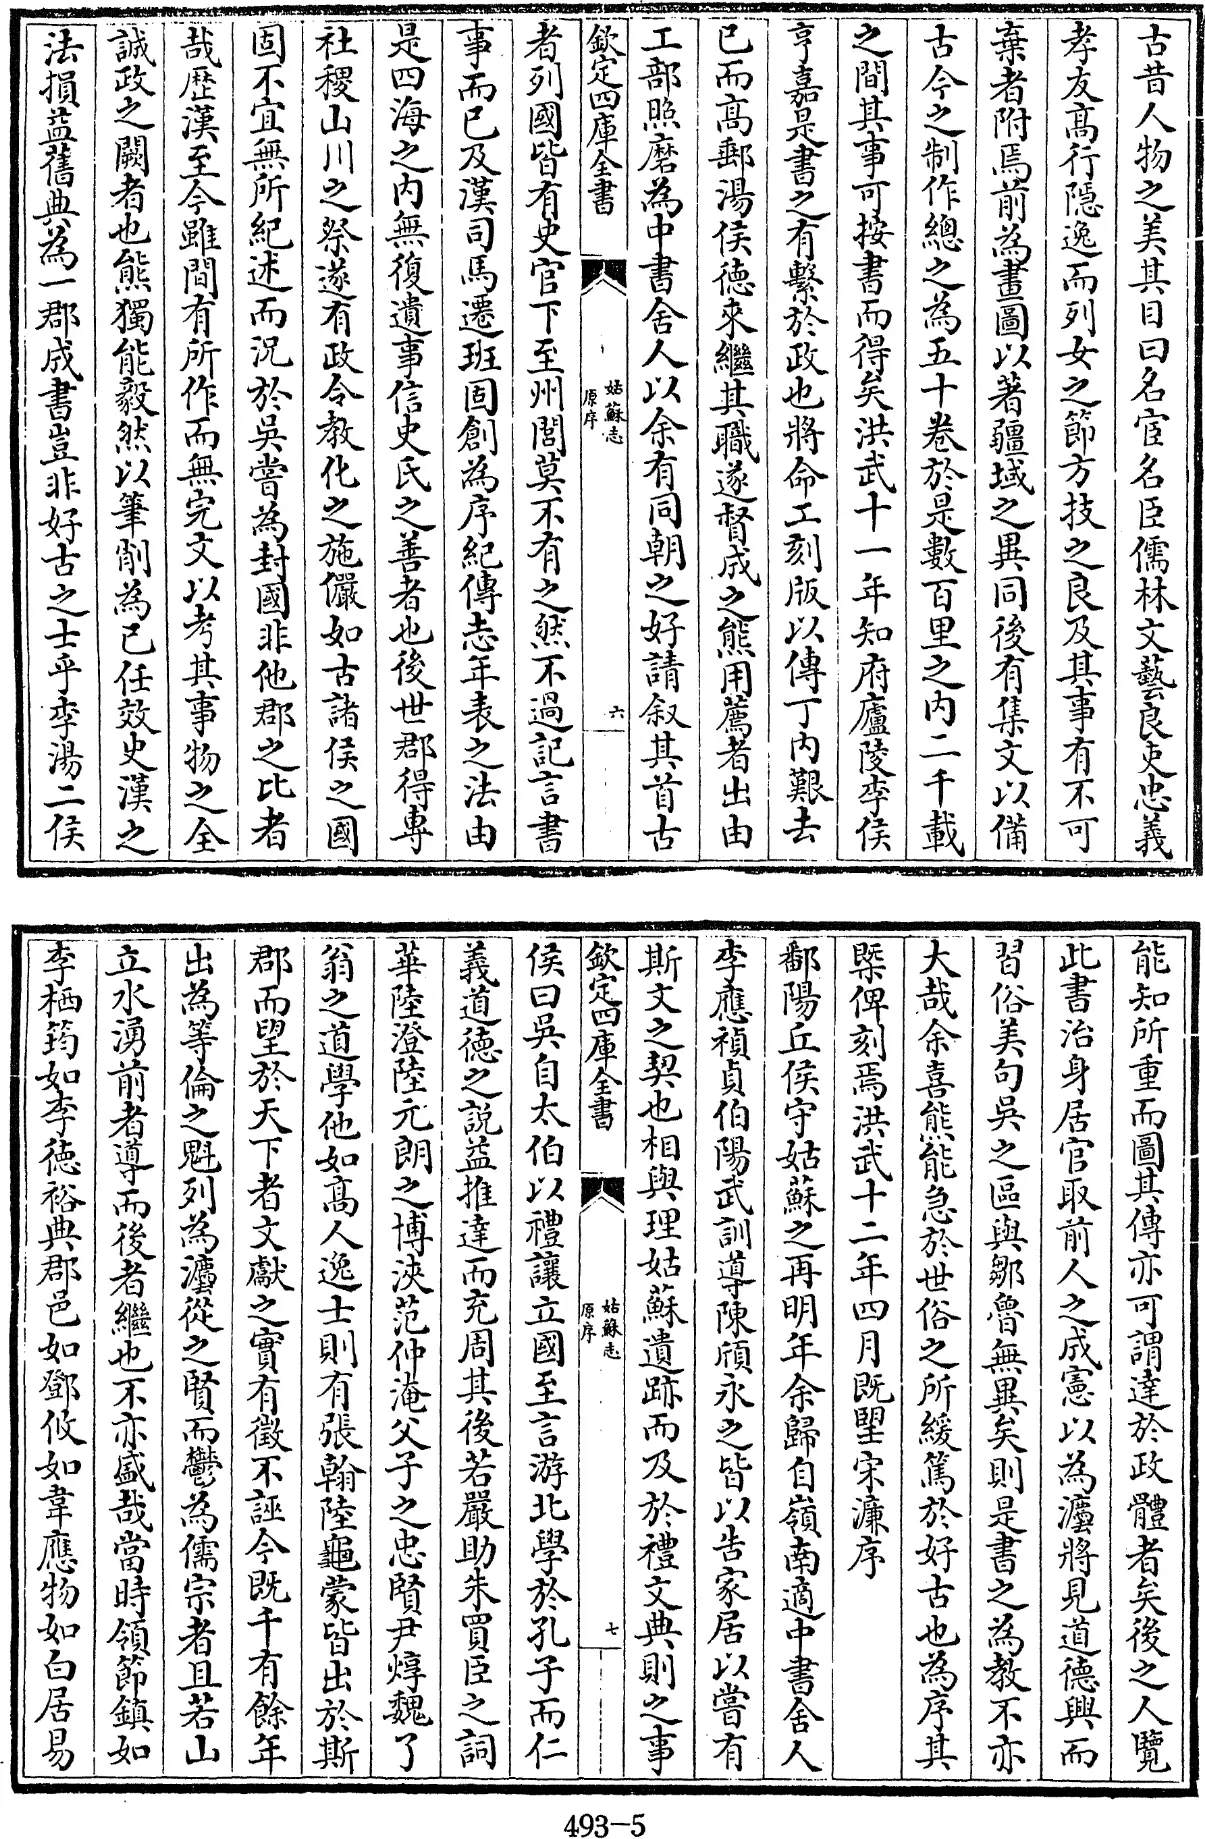 古昔人物之美其目曰名宦名臣儒林文藝良吏忠義
孝友髙行隠逸而列女之節方技之良及其事有不可
棄者附焉前為畫圖以著疆域之異同後有集文以備
古今之制作總之為五十卷於是數百里之内二千載
之間其事可按書而得矣洪武十一年知府廬陵李侯
亨嘉是書之有繫於政也將命工刻版以傳丁内艱去
已而髙郵湯侯徳來繼其職遂督成之熊用薦者出由
工部照磨為中書舍人以余有同朝之好請叙其首古
欽定四庫全書
姑蘇志
原序
六
者列國皆有史官下至州閭莫不有之然不過記言書
事而已及漢司馬遷班固創為序紀傳志年表之法由
是四海之内無復遺事信史氏之善者也後世郡得專
社稷山川之祭遂有政令教化之施儼如古諸侯之國
固不宜無所紀述而況於吳嘗為封國非他郡之比者
哉歴漢至今雖間有所作而無完文以考其事物之全
誠政之闕者也熊獨能毅然以筆削為已任效史漢之
法損益舊典為一郡成書豈非好古之士乎李湯二侯
能知所重而圖其傳亦可謂達於政體者矣後之人覽
此書治身居官取前人之成憲以為灋將見道徳興而
習俗美句吳之區與鄒魯無異矣則是書之為教不亦
大哉余喜熊能急於世俗之所緩篤於好古也為序其
槩俾刻焉洪武十二年四月既望宋濂序
鄱陽丘侯守姑蘇之再明年余歸自嶺南適中書舍人
李應禎貞伯陽武訓導陳頎永之皆以告家居以嘗有
斯文之契也相與理姑蘇遺跡而及於禮文典則之事
欽定四庫全書
姑蘇志
原序
七
侯曰吳自太伯以禮讓立國至言游北學於孔子而仁
義道徳之説益推達而充周其後若嚴助朱買臣之詞
華陸澄陸元朗之博浹范仲淹父子之忠賢尹焞魏了
翁之道學他如髙人逸士則有張翰陸龜蒙皆出於斯
郡而望於天下者文獻之實有徵不誣今既千有餘年
出為等倫之魁列為灋從之賢而鬱為儒宗者且若山
立水湧前者導而後者繼也不亦盛哉當時領節鎮如
李栖筠如李徳裕典郡邑如鄧攸如韋應物如白居易
493-5